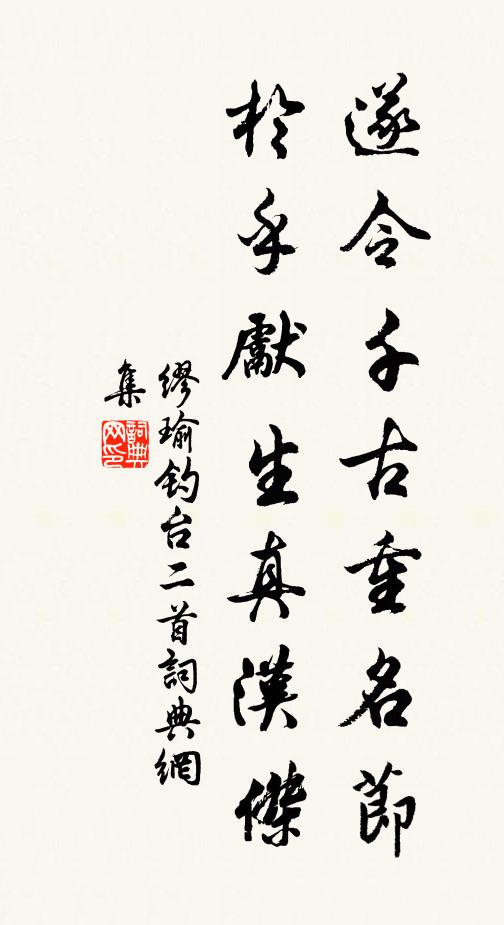 遂令千古重名節
於乎獻生真漢傑
繆瑜钓台二首詞典網
集
詞典网印